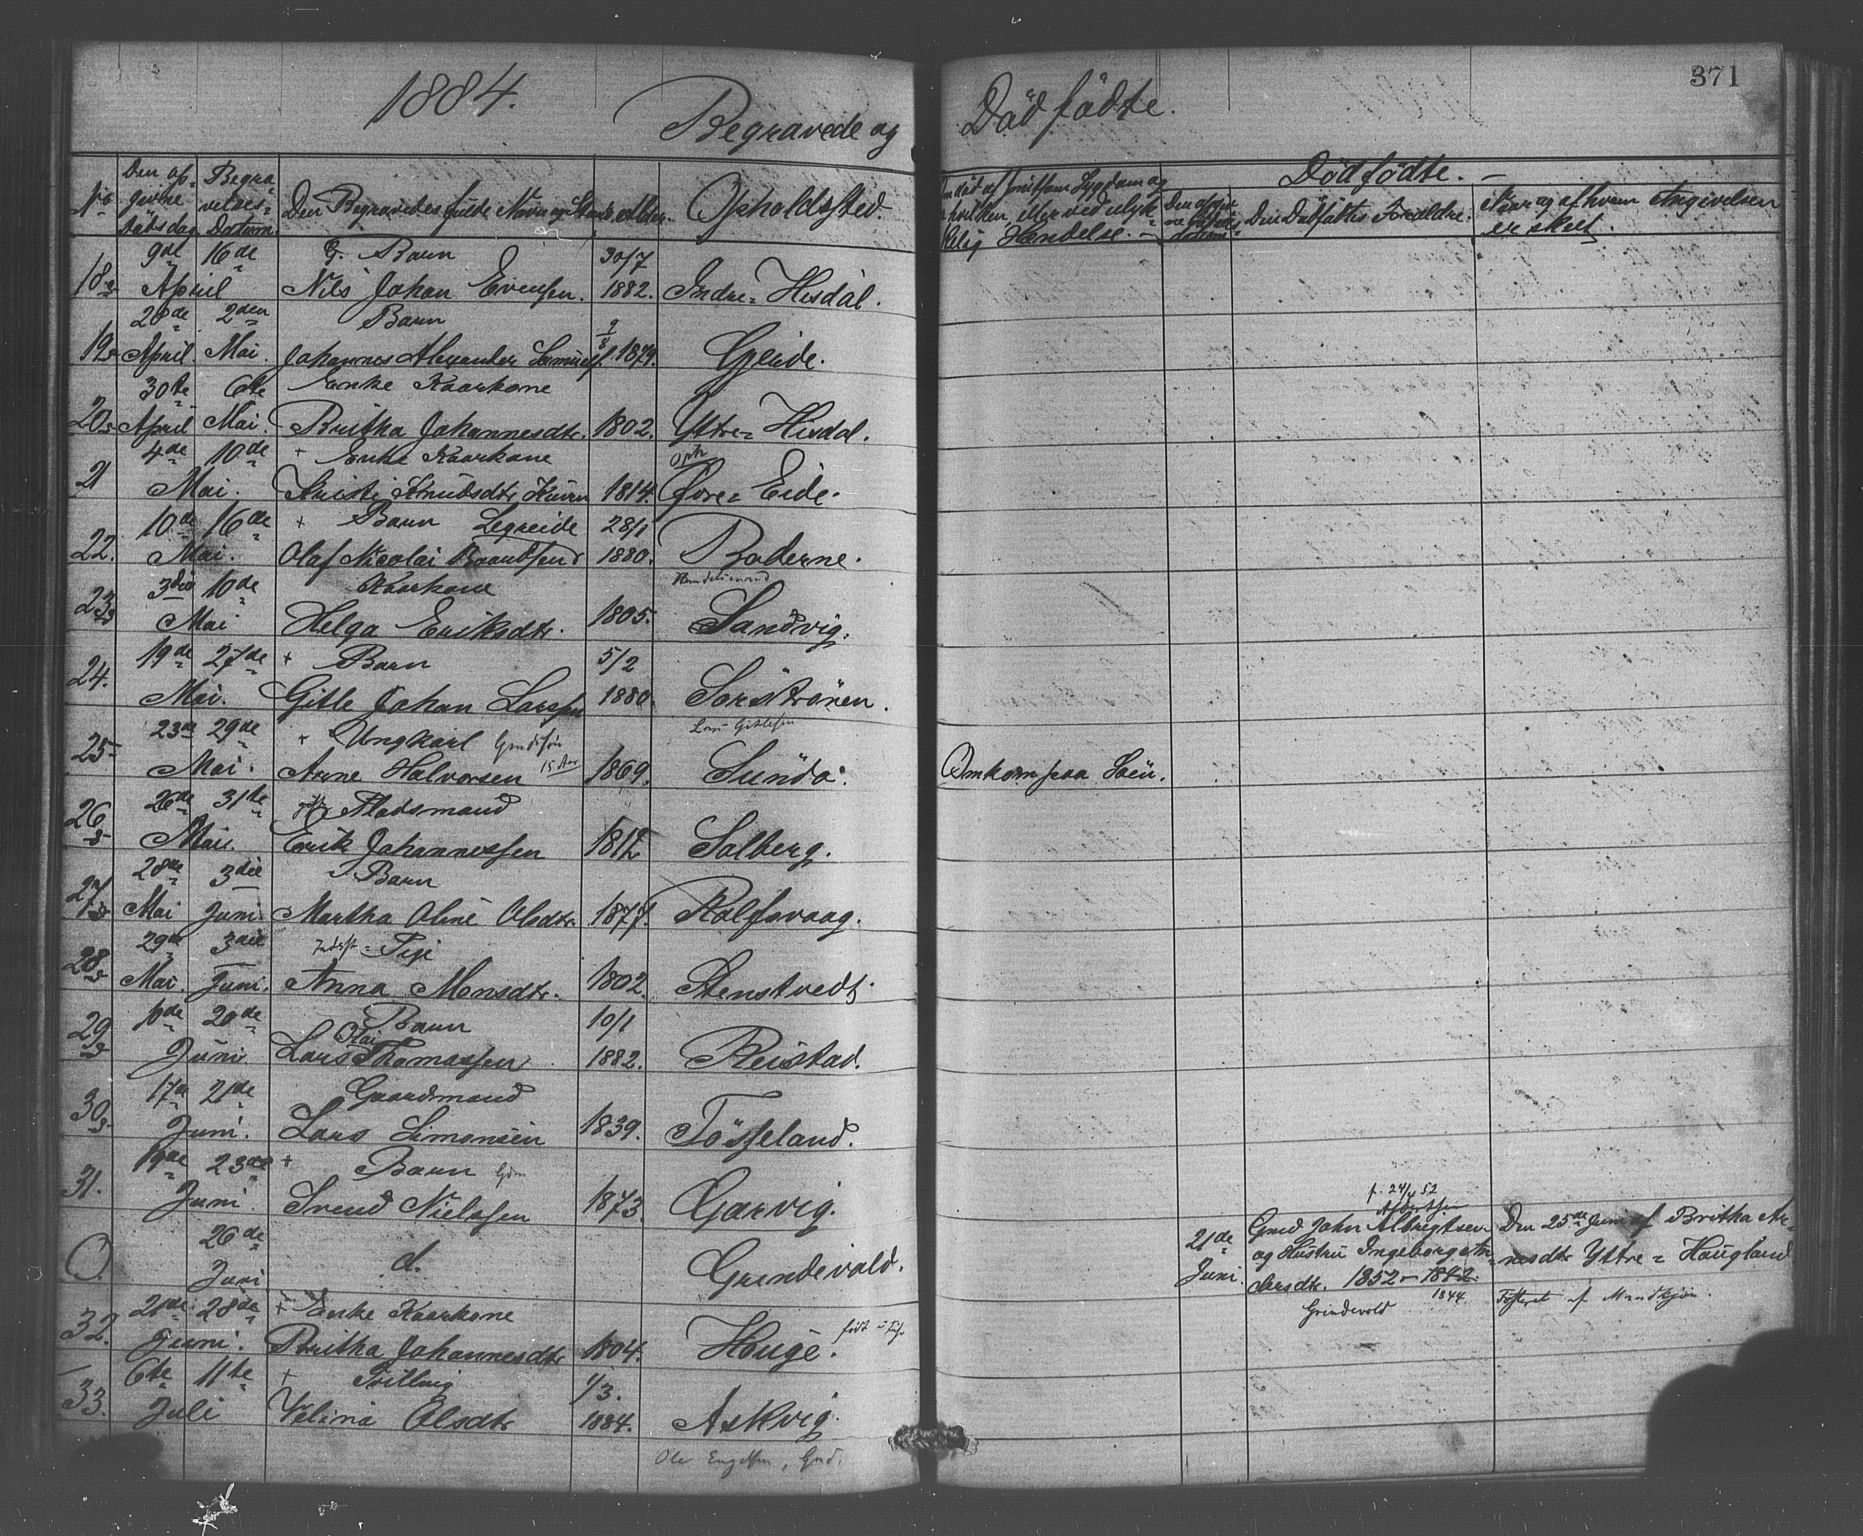 1884.
Begravede og Dödfödte.
371
No
Den opgivne Dödsdag
Begravelses Datum
Den Begravedes fulde Navn og Stand
Alder.
Opholdssted.
Om död af smitsom Sygdom og hvilken, eller ved ulykkelig Hændelse. —
Dödfödte. —
Den Dödfödtes Forældre.
Naar og af hvem Angivelsen er skeet.
9de 16de G. Barn 30/7
18 April Nils Johan Evensen. 1882. Indre Hisdal.
20de 2den Barn
19 April. Mai. Johannes Alexander Samuels. 1879. Gjeide.
30te 6te Enke Kaarkone
20 April Mai. Britha Johannesdtr. 1802. Yttre Hisdal.
4de 10de + Enke Kaarkone
21 Mai. Kristi Knudsdtr 1814. Övre Eide.
10de 16de + Barn Legreide 28/1
22. Mai. Olaf Nicolai 1880. Boderne.
3die 10de Kaarkone
23 Mai Helga Eriksdtr. 1805. Sandvig.
19de 27de + Barn 5/2
24. Mai. Gitle Johan Larssen 1880. Sorströnen.
Lars Gitlesen
23de 29de + Ungkarl 15 Aar
25 Mai. Arne Halvorsen 1869. Sundö. Omkom paa Söen.
26de 31te Pladsmand
26 Mai. Erik Johannessen 1812 Solberg.
28de 3die Barn
27 Mai Juni Martha Oline Olsdtr. 1877. Rolfsvaag.
29de 3die Indst Pige
28 Mai. Juni. Anna Monsdtr. 1802. Stenstvedt.
20de Barn 10/1
29 Juni Lars Olai Thomassen 1882. Reistad.
17de 21de Gaardmand
30 Juni. Lars Simonsen 1839. Tösseland.
19de 23de + Barn
31. Juni. Svend Nielssen 1873. Garvig.
f. 24/4 52
O. 26de Juni d. Grindevold.
21de Juni. Gmd John Albregtsen og Hustru Ingeborg Andersdtr. 1852 — 1842
1844
Grindevold
Den 25de Juni af Britha Arnesdtr Yttre Haugland
28de + Enke Kaarkone
32. Juni. Britha Johannesdtr 1804. Houge.
6te 11te + Tvilling 1/3.
33. Juli Velina Olsdtr 1884. Askvig.
Ole Engelsen, Gmd.